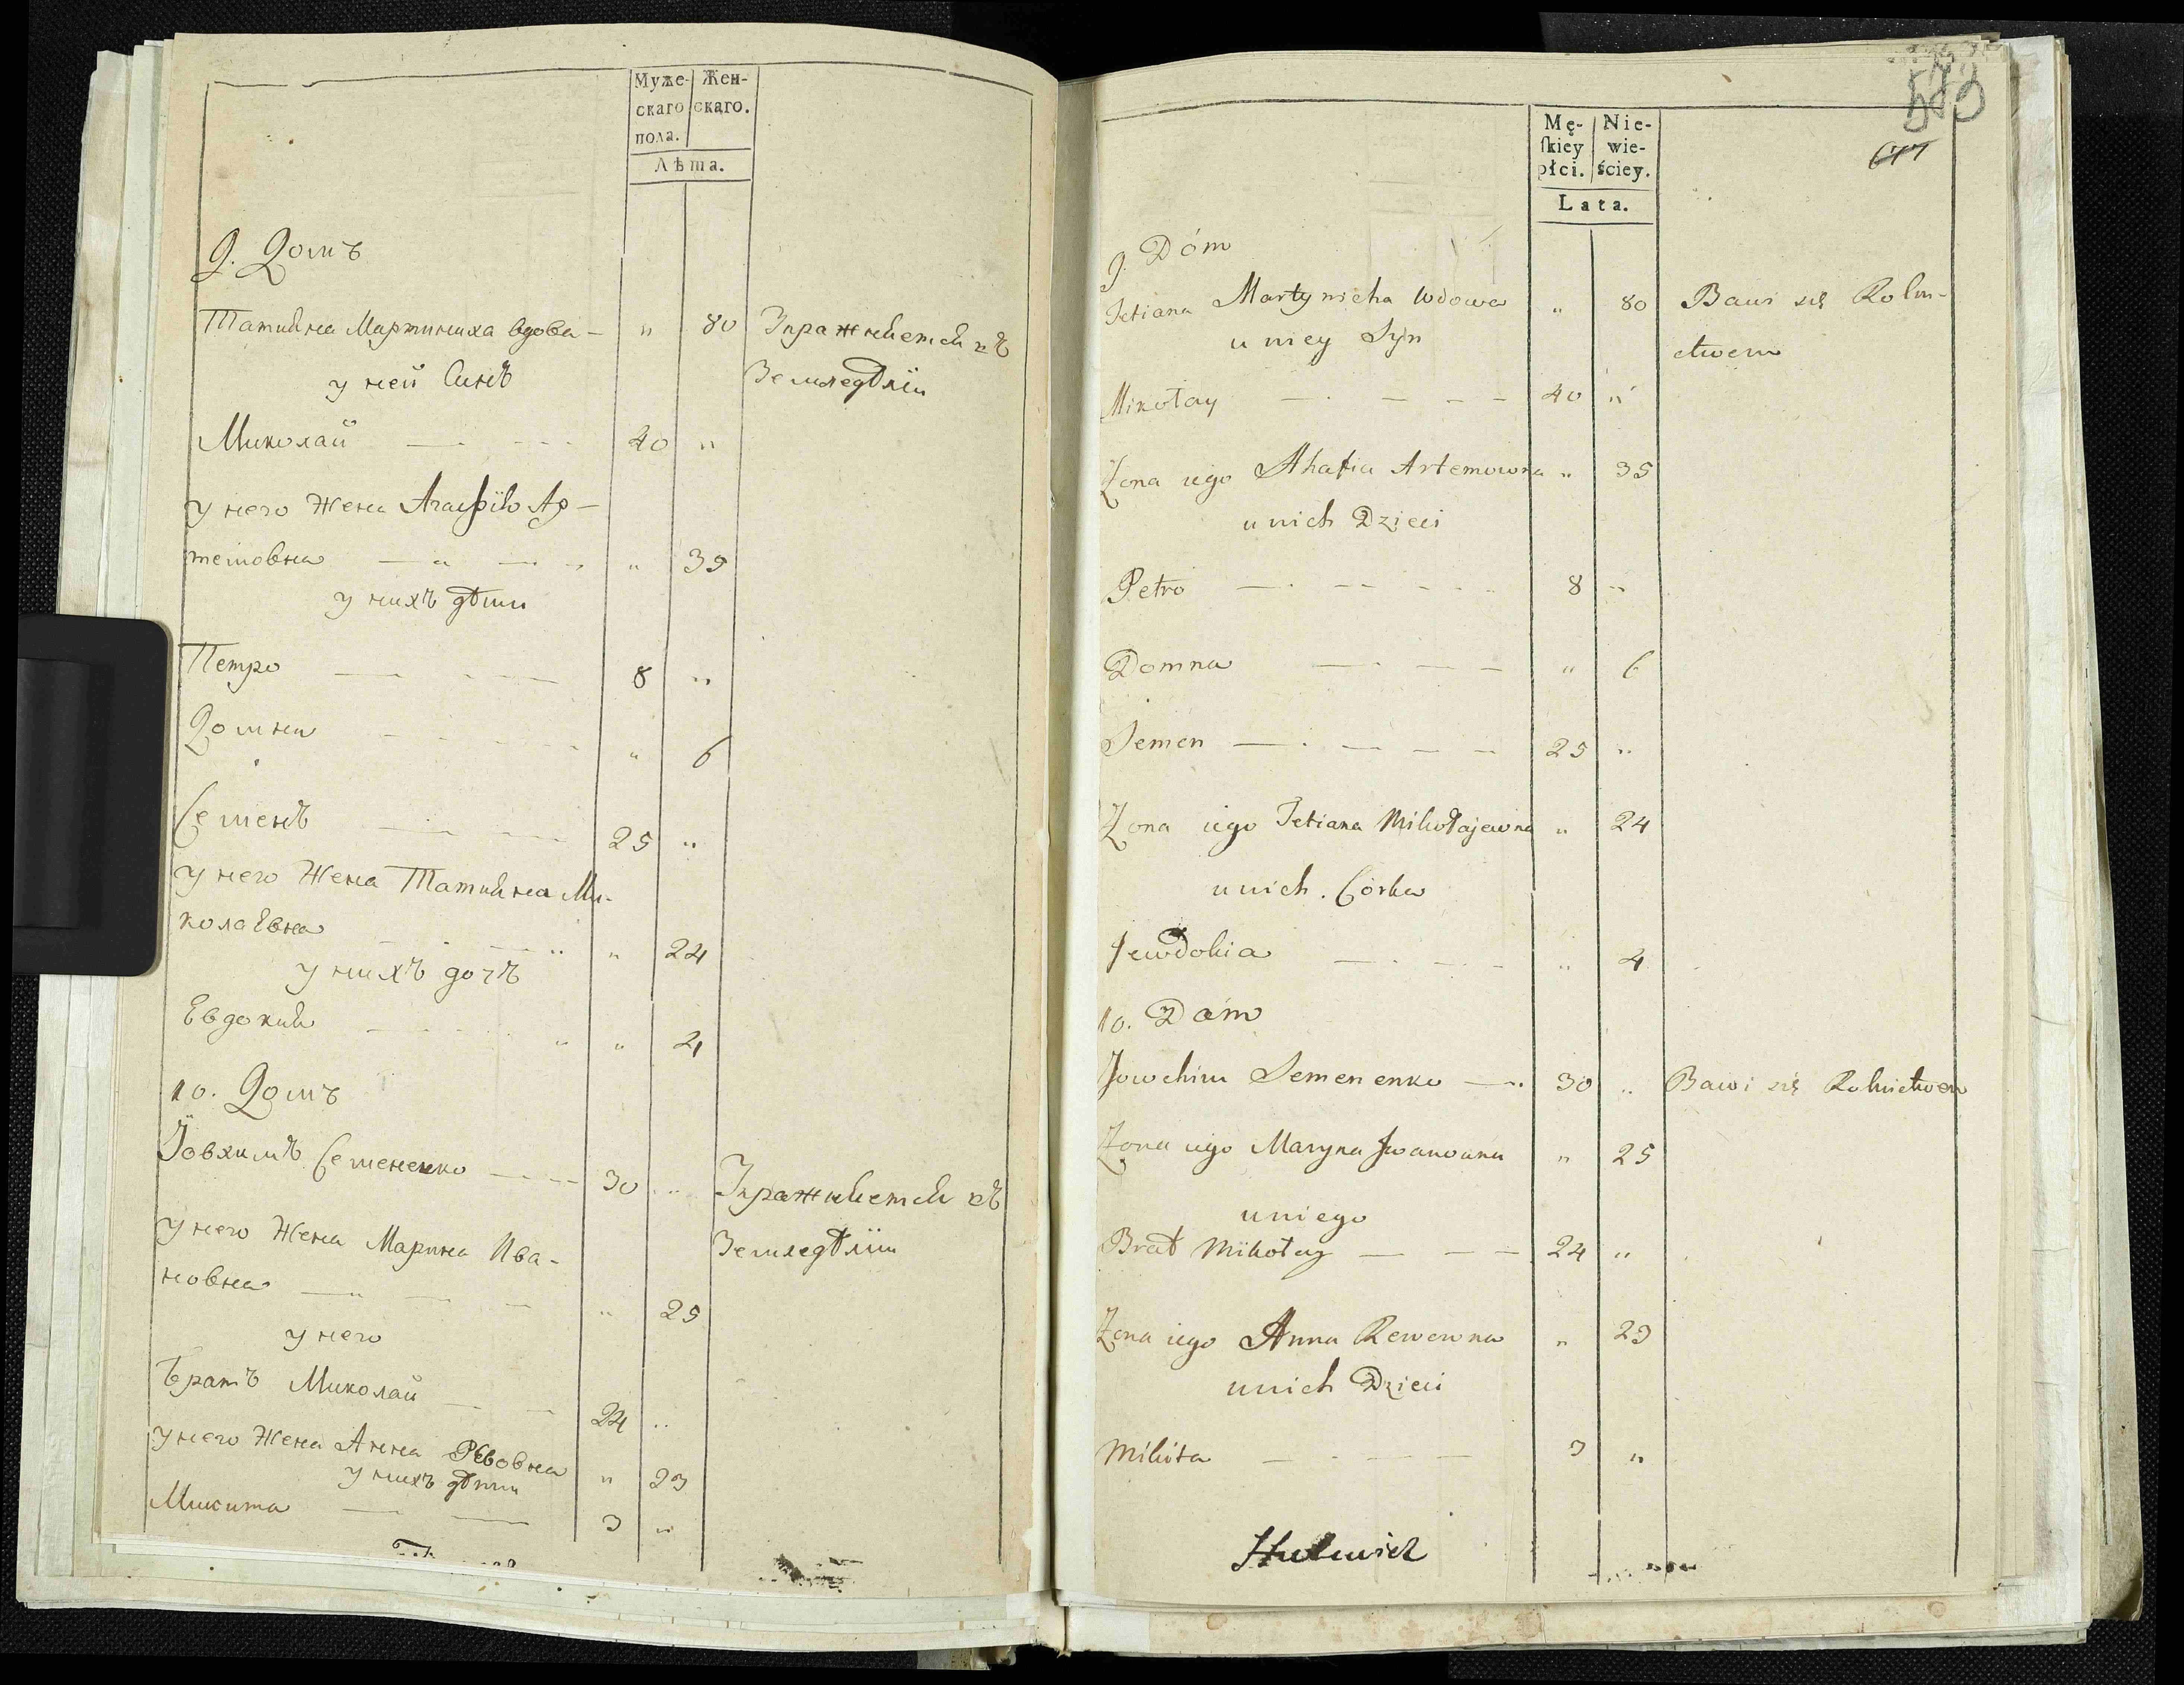 Муже- Жен-
скаго скаго.
пола.
Лѣта.
9. Домъ
Татияна Мартиниха вдова — " 80 Упражняется къ
у ней Синъ Земледѣлїи
Миколай — 40 "
у него Жена Агафїя Ар-
темовна — " 35
у нихъ дѣти
Петро — 8 "
Домна " 6
Семенъ — 25 "
у него Жена Татияна Ми-
колаевна — " 24
у нихъ дочъ
Евдокия — " 4
10. Домъ
Іовхимъ Семененко — 30 " Упражняется къ
у него Жена Марина Ива- Земледѣлїи
новна — " 25
у него
Братъ Миколай — 24 "
у него Жена Анна Ревовна " 23
у нихъ дѣти
Микита — 3 "
677
Mę- Nie-
ſkiey wie-
płci. ściey.
Lata.
9. Dóm
Tetiana Martynicha Wdowa " 80 Bawi się Rolni-
u niey Syn ctwem
Mikołay — 40 "
Żona iego Ahafia Artemowna " 35
u nich Dzieci
Petro — 8 "
Domna — " 6
Semen — 25 "
Żona iego Tetiana Mikołajewna " 24
u nich Córka
Jewdokia — " 4
10. Dóm
Jowchim Semenenko — 30 " Bawi się Rolnictwem
Żona iego Maryna Iwanowna " 25
u niego
Brat Mikołay — 24 "
Żona iego Anna Rewowna " 23
u nich Dzieci
Mikita — 3 "
Hulewicz